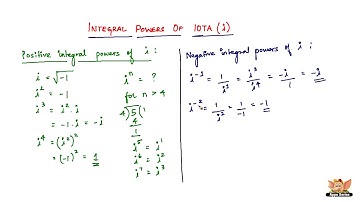 INTEGRAL POWERS OF IOTA (i)
Positive integral powers of i :
i = √-1
i² = -1
i³ = i² · i
= -1 · i = -i
i⁴ = (i²)²
= (-1)² = 1
iⁿ = ?
for n > 4
4) 5 ( 1
4
1
i⁵ = i¹
i⁶ = i²
i⁷ = i³
Negative integral powers of i :
i⁻¹ = 1/i¹ = i³/i⁴ = -i/1 = -i
i⁻² = 1/i² = 1/-1 = -1